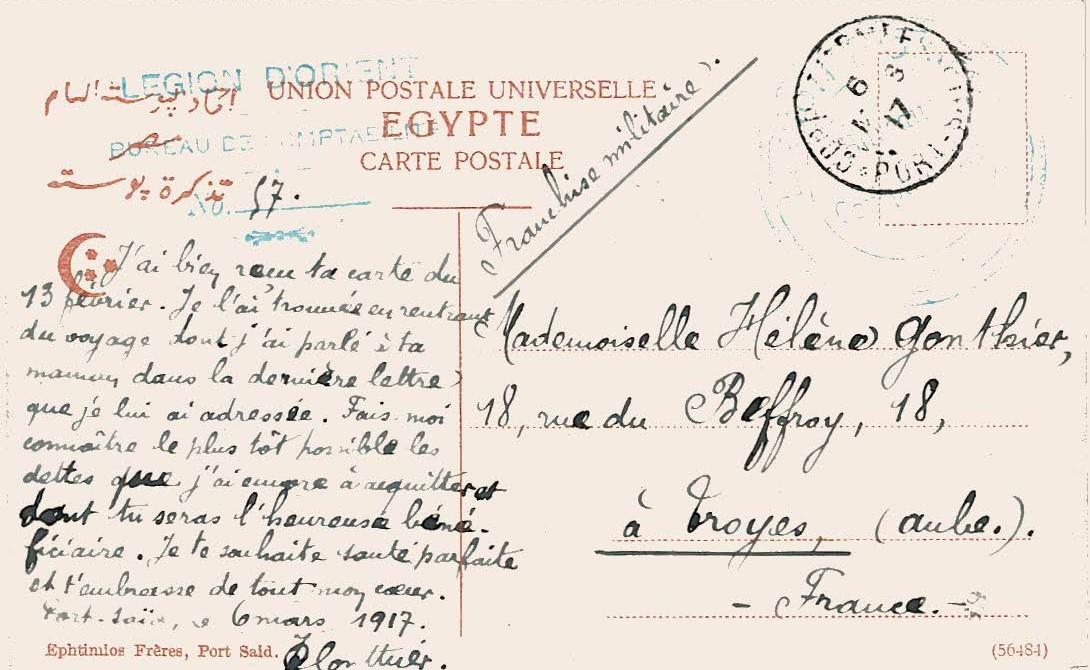 LEGION D'ORIENT
UNION POSTALE UNIVERSELLE
EGYPTE
BUREAU DE COMPTABILITÉ
CARTE POSTALE
تذكرة بوستة
No. 57.
Franchise militaire).
6 3
17
PORT-S
J'ai bien reçu ta carte du
13 février. Je l'ai trouvée en rentrant
du voyage dont j'ai parlé à ta
maman dans la dernière lettre
que je lui ai adressée. Fais-moi
connaître le plus tôt possible les
dettes que j'ai encore à acquitter et
dont tu seras l'heureuse béné-
ficiaire. Je te souhaite santé parfaite
et t'embrasse de tout mon cœur.
Port-Saïd, le 6 mars 1917.
Gonthier.
Mademoiselle Hélène Gonthier,
18, rue du Beffroy, 18,
à Troyes, (aube.).
- France. -
Ephtimios Frères, Port Said.
(56484)